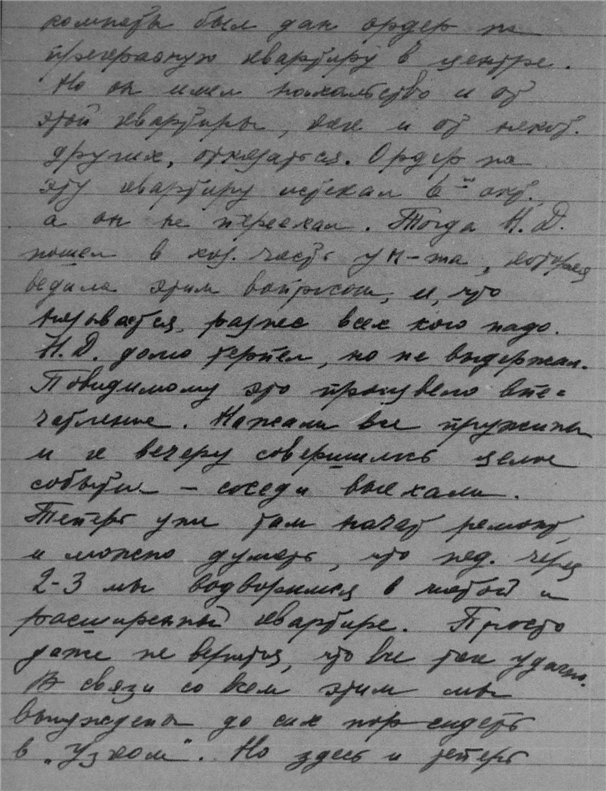 комнаты был дан ордер на
прекрасную квартиру в центре.
Но он имел нахальство и от
этой квартиры, как и от некот.
других, отказаться. Ордер на
эту квартиру истекал 6-го окт.
а он не переехал. Тогда Н. Д.
пошел в хоз. часть ун-та, которая
ведала этим вопросом, и, что
называется, разнес всех кого надо.
Н. Д. долго терпел, но не выдержал.
Повидимому это произвело впе-
чатление. Нажали все пружины
и к вечеру совершилось целое
событие – соседи выехали.
Теперь уже там начат ремонт,
и можно думать, что нед. через
2-3 мы водворимся в чистой и
расширенной квартире. Просто
даже не верится, что все так удачно.
В связи со всем этим мы
вынуждены до сих пор сидеть
в „Узком". Но здесь и теперь